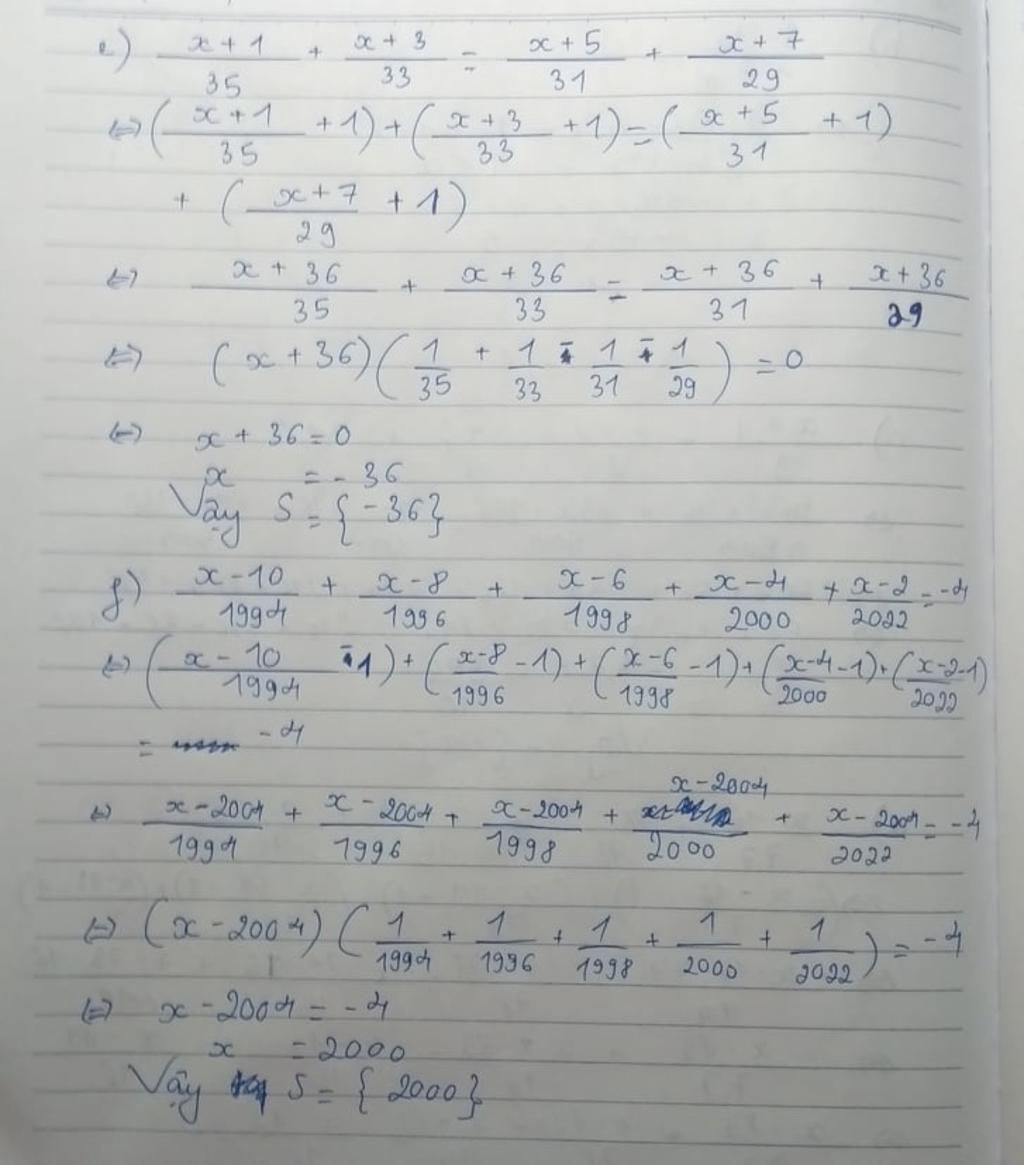 e) (x+1)/35 + (x+3)/33 = (x+5)/31 + (x+7)/29
⇔ ((x+1)/35 + 1) + ((x+3)/33 + 1) = ((x+5)/31 + 1)
+ ((x+7)/29 + 1)
⇔ (x+36)/35 + (x+36)/33 = (x+36)/31 + (x+36)/29
⇔ (x+36)(1/35 + 1/33 - 1/31 - 1/29) = 0
⇔ x + 36 = 0
x = -36
Vậy S = {-36}
f) (x-10)/1994 + (x-8)/1996 + (x-6)/1998 + (x-4)/2000 + (x-2)/2022 = -4
⇔ ((x-10)/1994 - 1) + ((x-8)/1996 - 1) + ((x-6)/1998 - 1) + ((x-4)/2000 - 1) + ((x-2)/2022 - 1)
= -4
⇔ (x-2004)/1994 + (x-2004)/1996 + (x-2004)/1998 + (x-2004)/2000 + (x-2004)/2022 = -4
⇔ (x-2004)(1/1994 + 1/1996 + 1/1998 + 1/2000 + 1/2022) = -4
⇔ x - 2004 = -4
x = 2000
Vậy S = {2000}